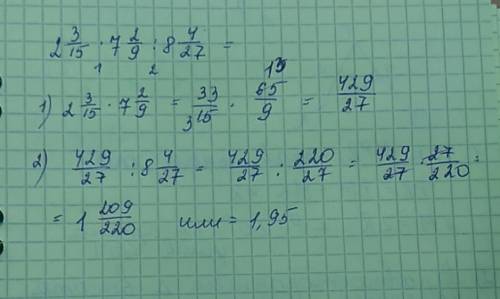 2 3/15 · 7 2/9 : 8 4/27 =
1 2
13
1) 2 3/15 · 7 2/9 = 33/15 · 65/9 = 429/27
3
2) 429/27 : 8 4/27 = 429/27 : 220/27 = 429/27 · 27/220 =
= 1 209/220 или = 1,95